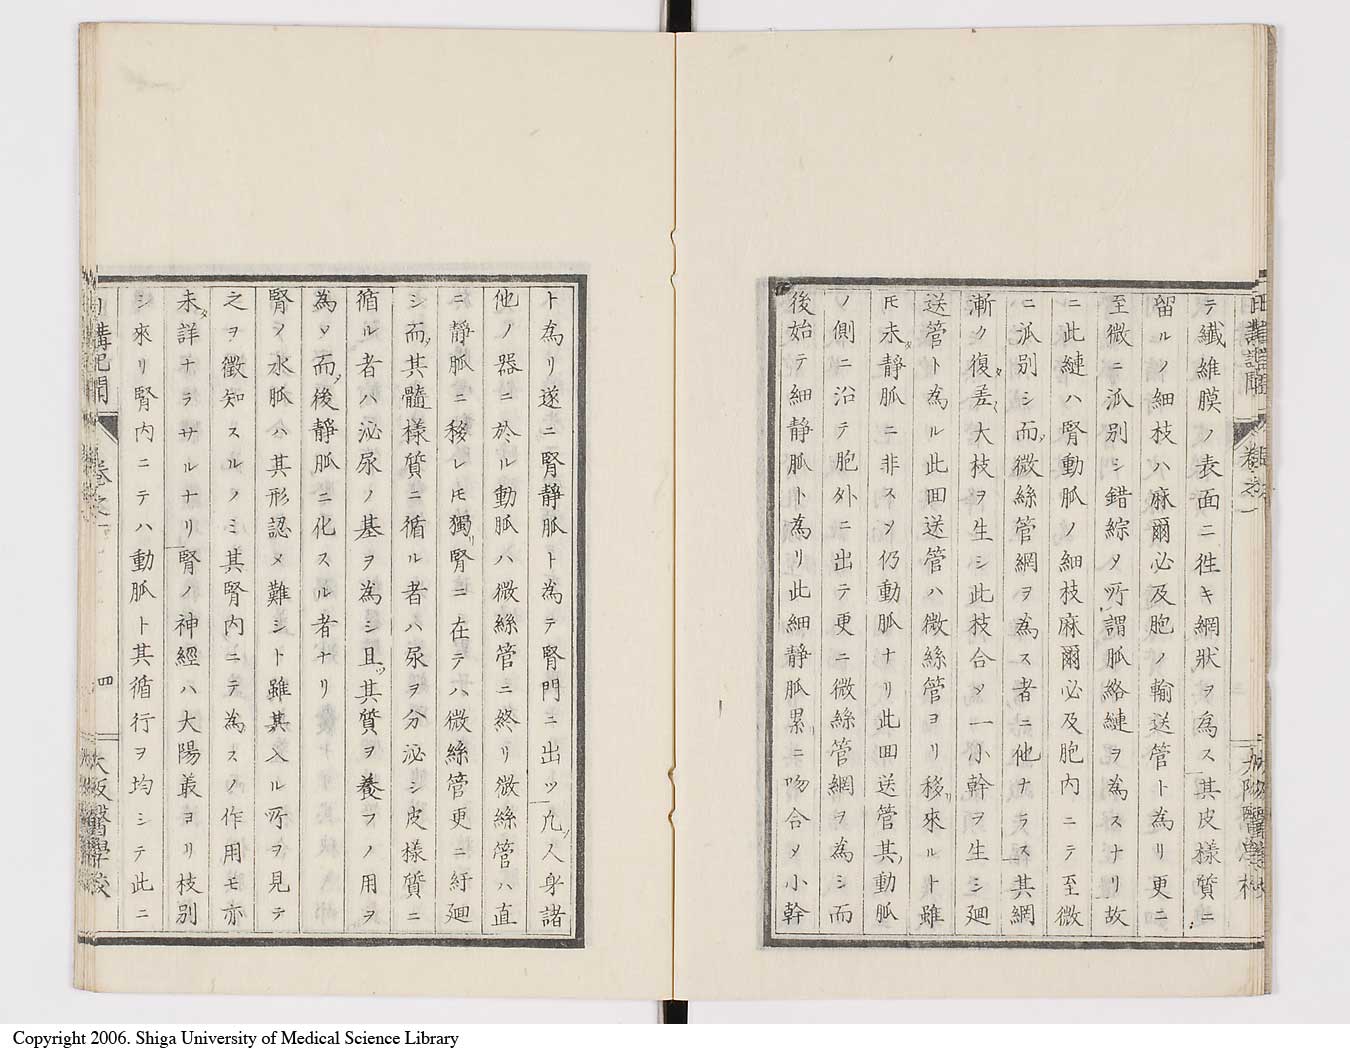 テ纎維膜ノ表面ニ徃キ網狀ヲ爲ス其皮様質ニ
留ルノ細枝ハ麻爾必及胞ノ輸送管ト為リ更ニ
至微ニ派別シ錯綜メ所謂脈絡縺ヲ為スナリ故
ニ此縺ハ腎動脈ノ細枝麻爾必及胞内ニテ至微
ニ派別シ而微絲管網ヲ為ス者ニ他ナラス其網
漸ク復タ大枝ヲ生シ此枝合メ一小幹ヲ生シ廻
送管ト為ル此回送管ハ微絲管ヨリ移リ來ルト雖
モ未タ靜脈ニ非スメ仍動脈ナリ此回送管其動脈
ノ側ニ沿テ胞外ニ出テ更ニ微絲管網ヲ為シ而
後始テ細靜脈ト為リ此細靜脈累リニ吻合メ小幹
ト為リ遂ニ腎靜脈ト為テ腎門ニ出ツ凡ソ人身諸
他ノ器ニ於ル動脈ハ微絲管ニ終リ微絲管ハ直
ニ靜脈ニ移レモ獨リ腎ニ在テハ微絲管更ニ紆廻
シ而其髓様質ニ循ル者ハ尿ヲ分泌シ皮様質ニ
循ル者ハ泌尿ノ基ヲ為シ且ツ其質ヲ養フノ用ヲ
為メ而後靜脈ニ化スル者ナリ
腎ノ水脈ハ其形認メ難シト雖其入ル所ヲ見テ
之ヲ徵知スルノミ其腎内ニテ為スノ作用モ亦
未タ詳ナラサルナリ腎ノ神經ハ大陽叢ヨリ枝別
シ來リ腎内ニテハ動脈ト其循行ヲ均シテ此ニ
日講記聞
卷之一
四
大阪醫學校